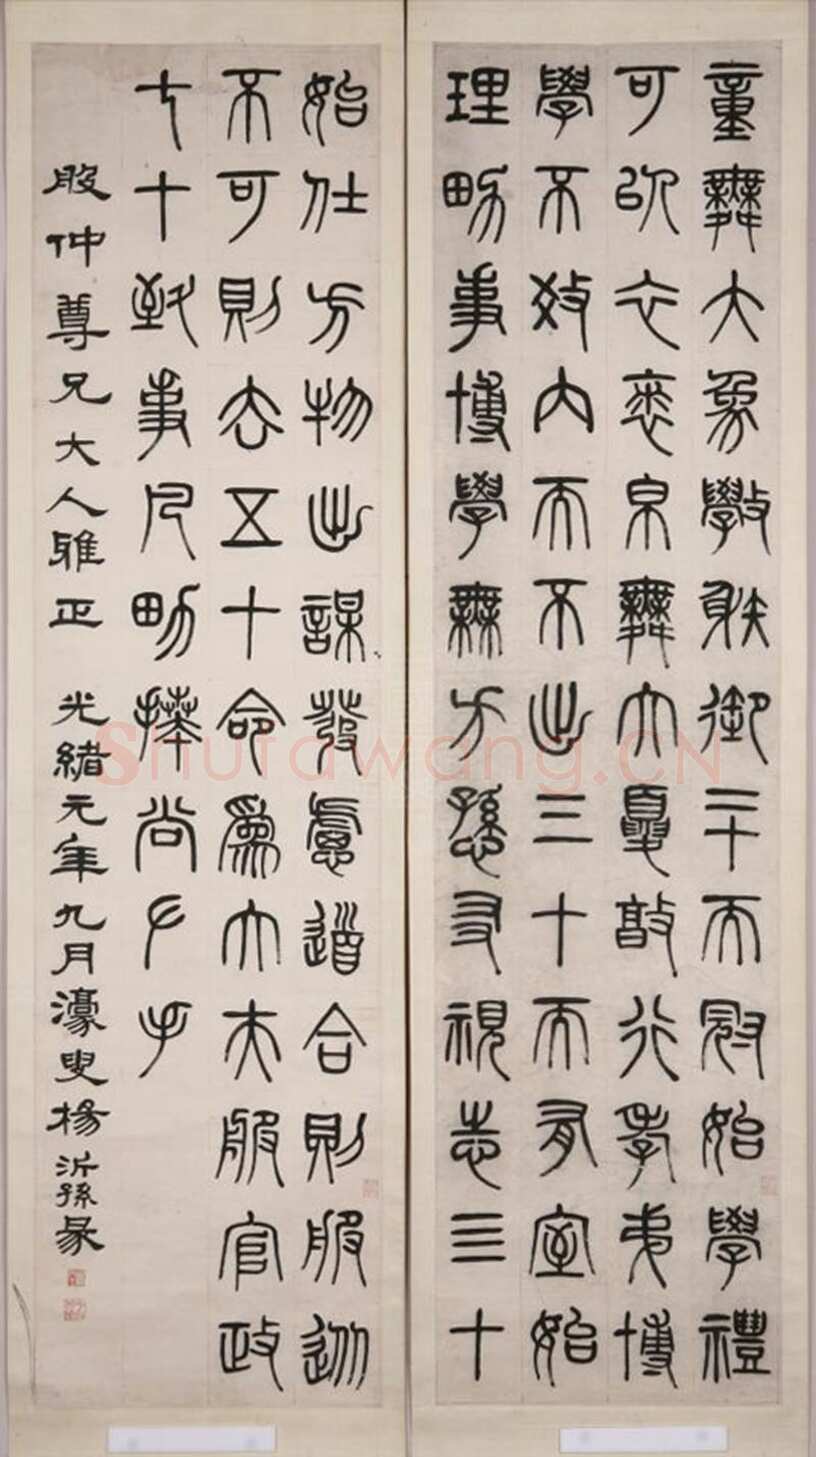 童舞大象斅射御二十而冠始學禮
可以衣裘帛舞大夏敦行孝弟博
學不教內而不出三十而有室始
理男事博學無方愻友視志四十
始仕方物出謀發慮道合則服從
不可則去五十命為大夫服官政
七十致事凡男拜尚左手
仲尊兄大人雅正 光緒元年九月濠叟楊沂孫篆
Shufawang.CN